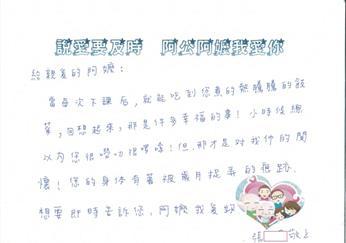 說愛要及時 阿公阿嬤我愛你
給親愛的阿嬤：
當每次下課后，就能吃到您煮的熱騰騰的飯
菜，回想起來，那是件多幸福的事！小時後總
以為您很嘮叨很囉嗦！但，那才是对我们的関
懷！您的身体有著被歲月捉弄的痕跡.
想要即時告訴您，阿嬤我爱妳
張 敬上